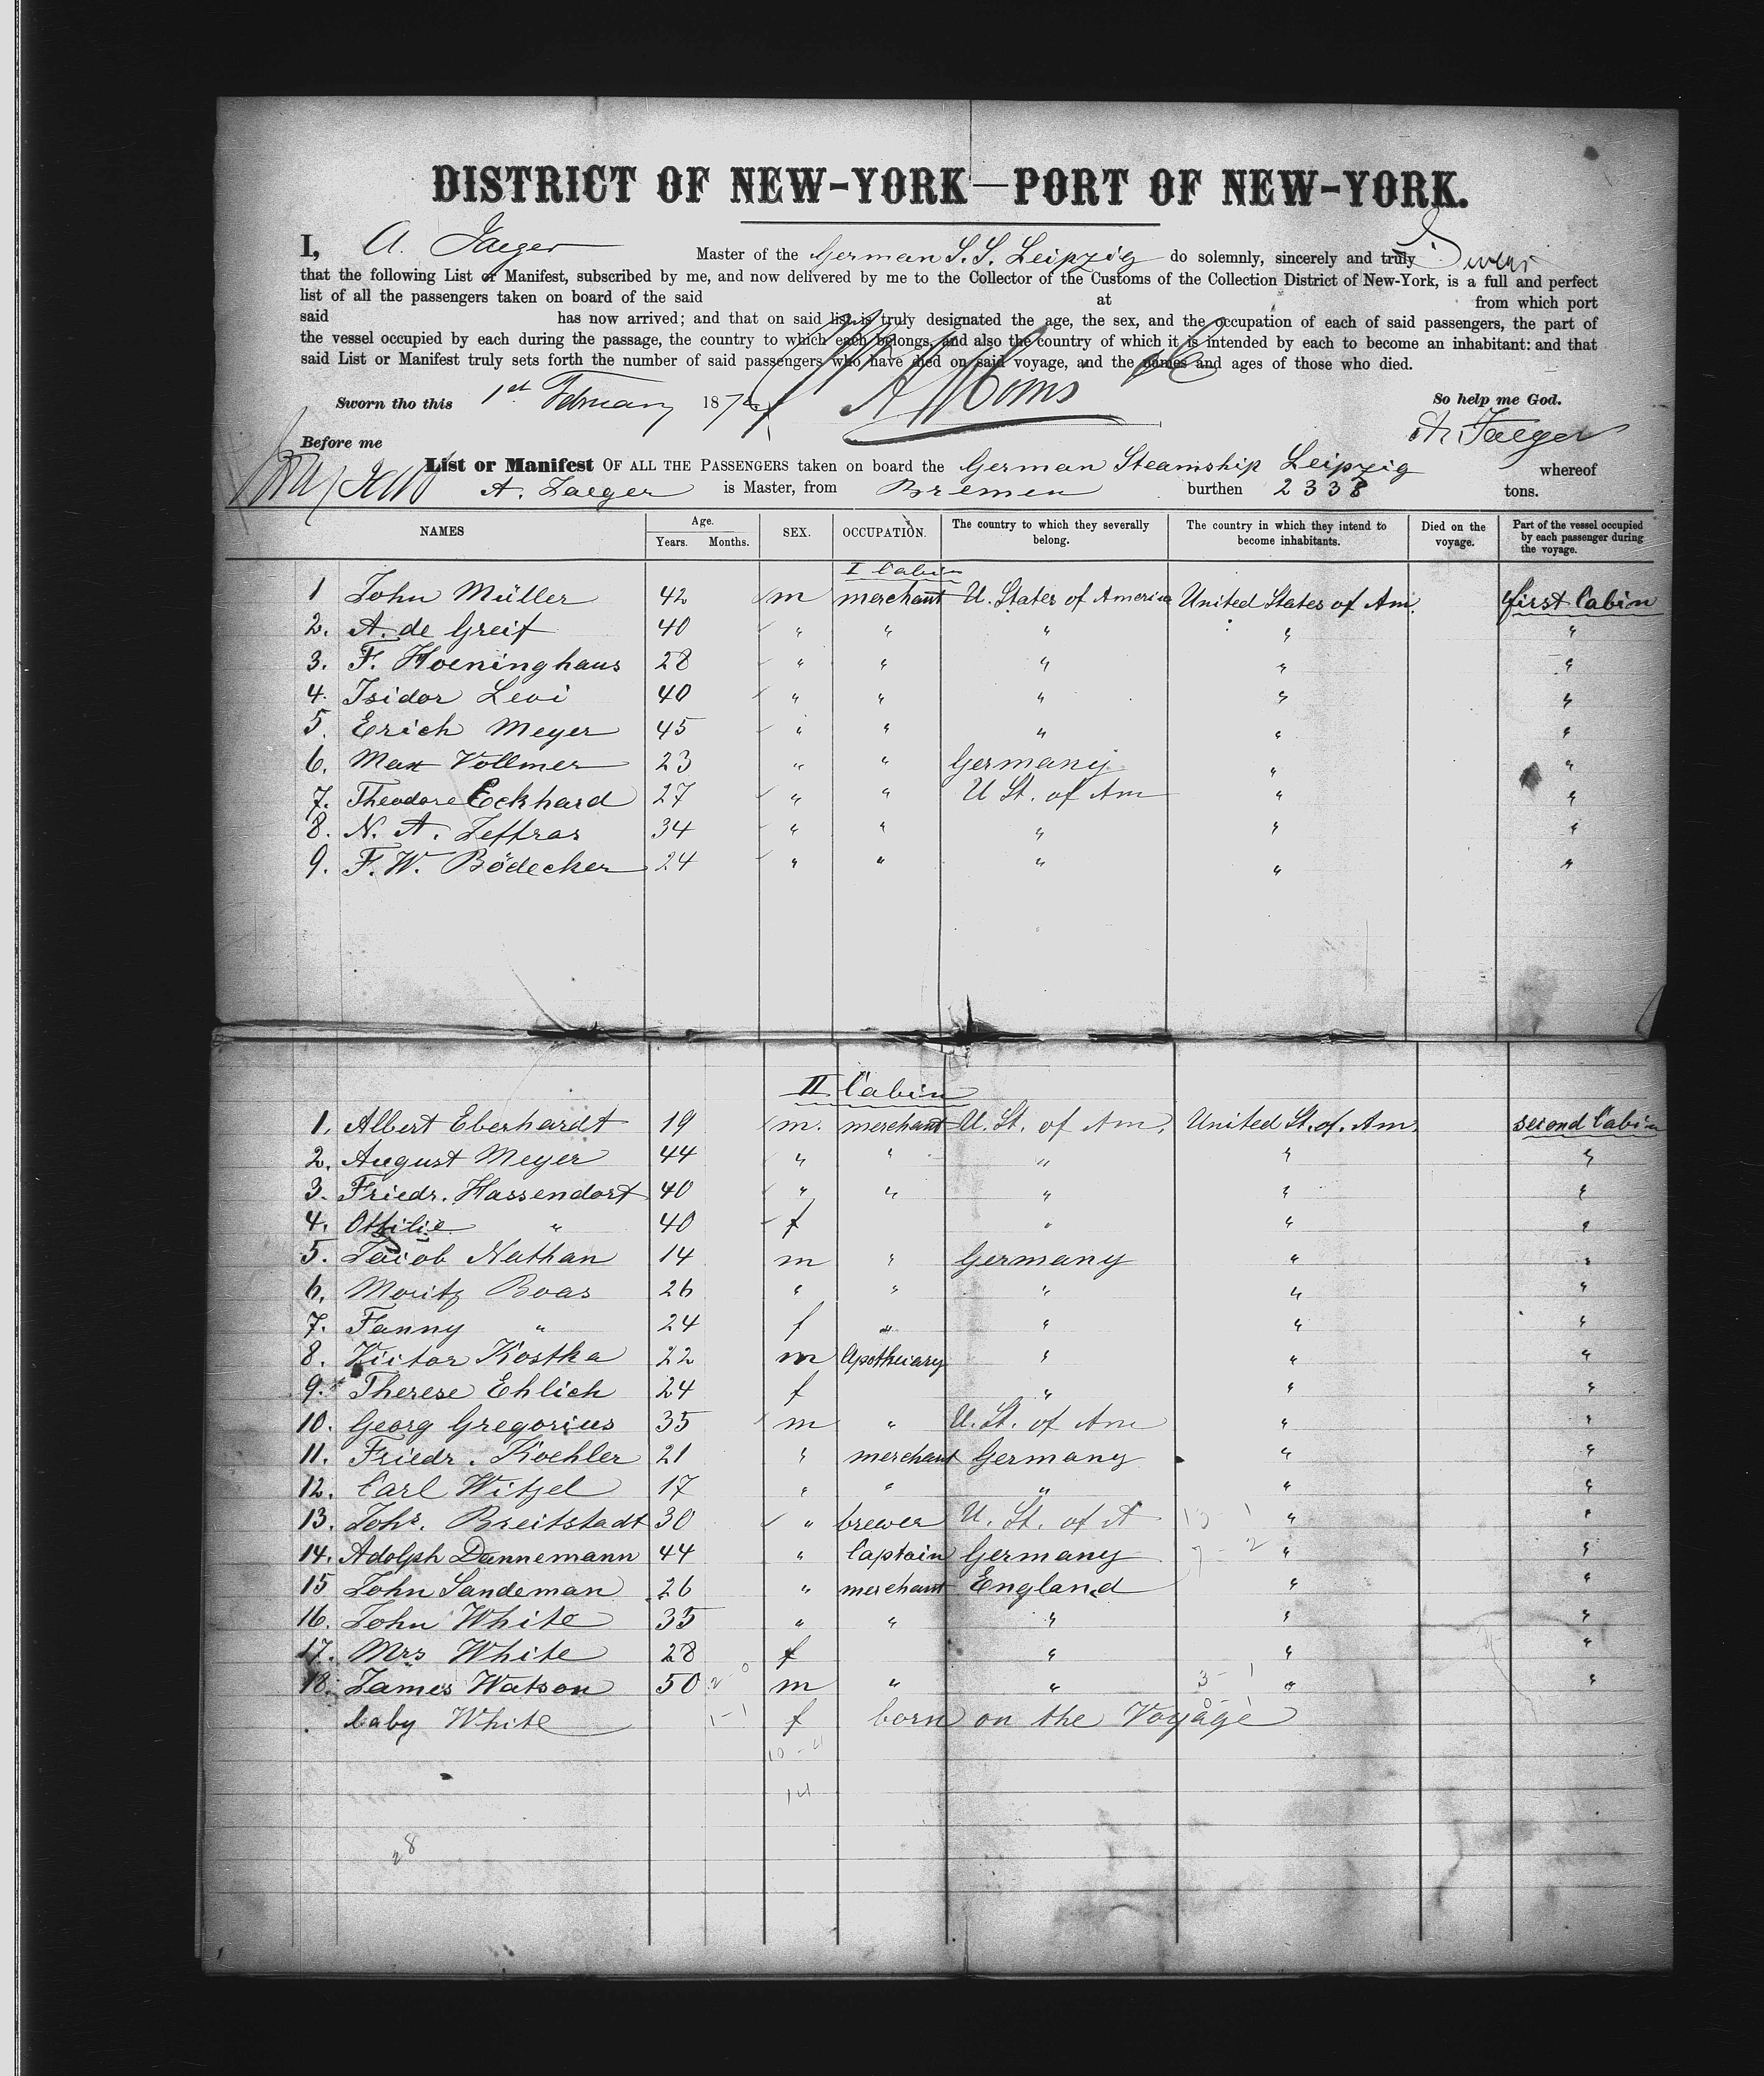 DISTRICT OF NEW-YORK—PORT OF NEW-YORK.
I, A. Jaeger Master of the German S.S. Leipzig do solemnly, sincerely and truly Swear
that the following List or Manifest, subscribed by me, and now delivered by me to the Collector of the Customs of the Collection District of New-York, is a full and perfect
list of all the passengers taken on board of the said at from which port
said has now arrived; and that on said list is truly designated the age, the sex, and the occupation of each of said passengers, the part of
the vessel occupied by each during the passage, the country to which each belongs, and also the country of which it is intended by each to become an inhabitant: and that
said List or Manifest truly sets forth the number of said passengers who have died on said voyage, and the names and ages of those who died.
Sworn tho this 1st February 187 So help me God.
A. Jaeger
Before me
List or Manifest OF ALL THE PASSENGERS taken on board the German Steamship Leipzig whereof
A. Jaeger is Master, from Bremen burthen 2338 tons.
NAMES Age. Years. Months. SEX. OCCUPATION. The country to which they severally belong. The country in which they intend to become inhabitants. Died on the voyage. Part of the vessel occupied by each passenger during the voyage.
I Cabin
1 John Müller 42 m merchant U. States of America United States of Am. first Cabin
2. A. de Greif 40 " " " " "
3. F. Hoeninghaus 28 " " " " "
4. Isidor Levi 40 " " " " "
5. Erich Meyer 45 " " " " "
6. Max Vollmer 23 " " Germany " "
7. Theodore Eckhard 27 " " U St. of Am " "
8. N. A. Jeffras 34 " " " " "
9. F. W. Bödecker 24 " " " " "
II Cabin
1. Albert Eberhardt 19 m. merchant U. St. of Am. United St. of. Am. second Cabin
2. August Meyer 44 " " " " "
3. Friedr. Hassendorf 40 " " " " "
4. Ottilie " 40 f " " "
5. Jacob Nathan 14 m " Germany " "
6. Moritz Boas 26 " " " " "
7. Fanny " 24 f " " " "
8. Victor Kostka 22 m Apothecary " " "
9. Therese Ehlich 24 f " " "
10. Georg Gregorius 35 m " U. St. of Am " "
11. Friedr. Koehler 21 " merchant Germany " "
12. Carl Witzel 17 " " " " "
13. Johs. Breitstadt 30 " brewer U. St. of A " "
14. Adolph Dannemann 44 " Captain Germany " "
15 John Sandeman 26 " merchant England " "
16. John White 35 " " " " "
17. Mrs White 28 f " " "
18. James Watson 50 m " " " "
baby White f born on the Voyage
10-4
14
28